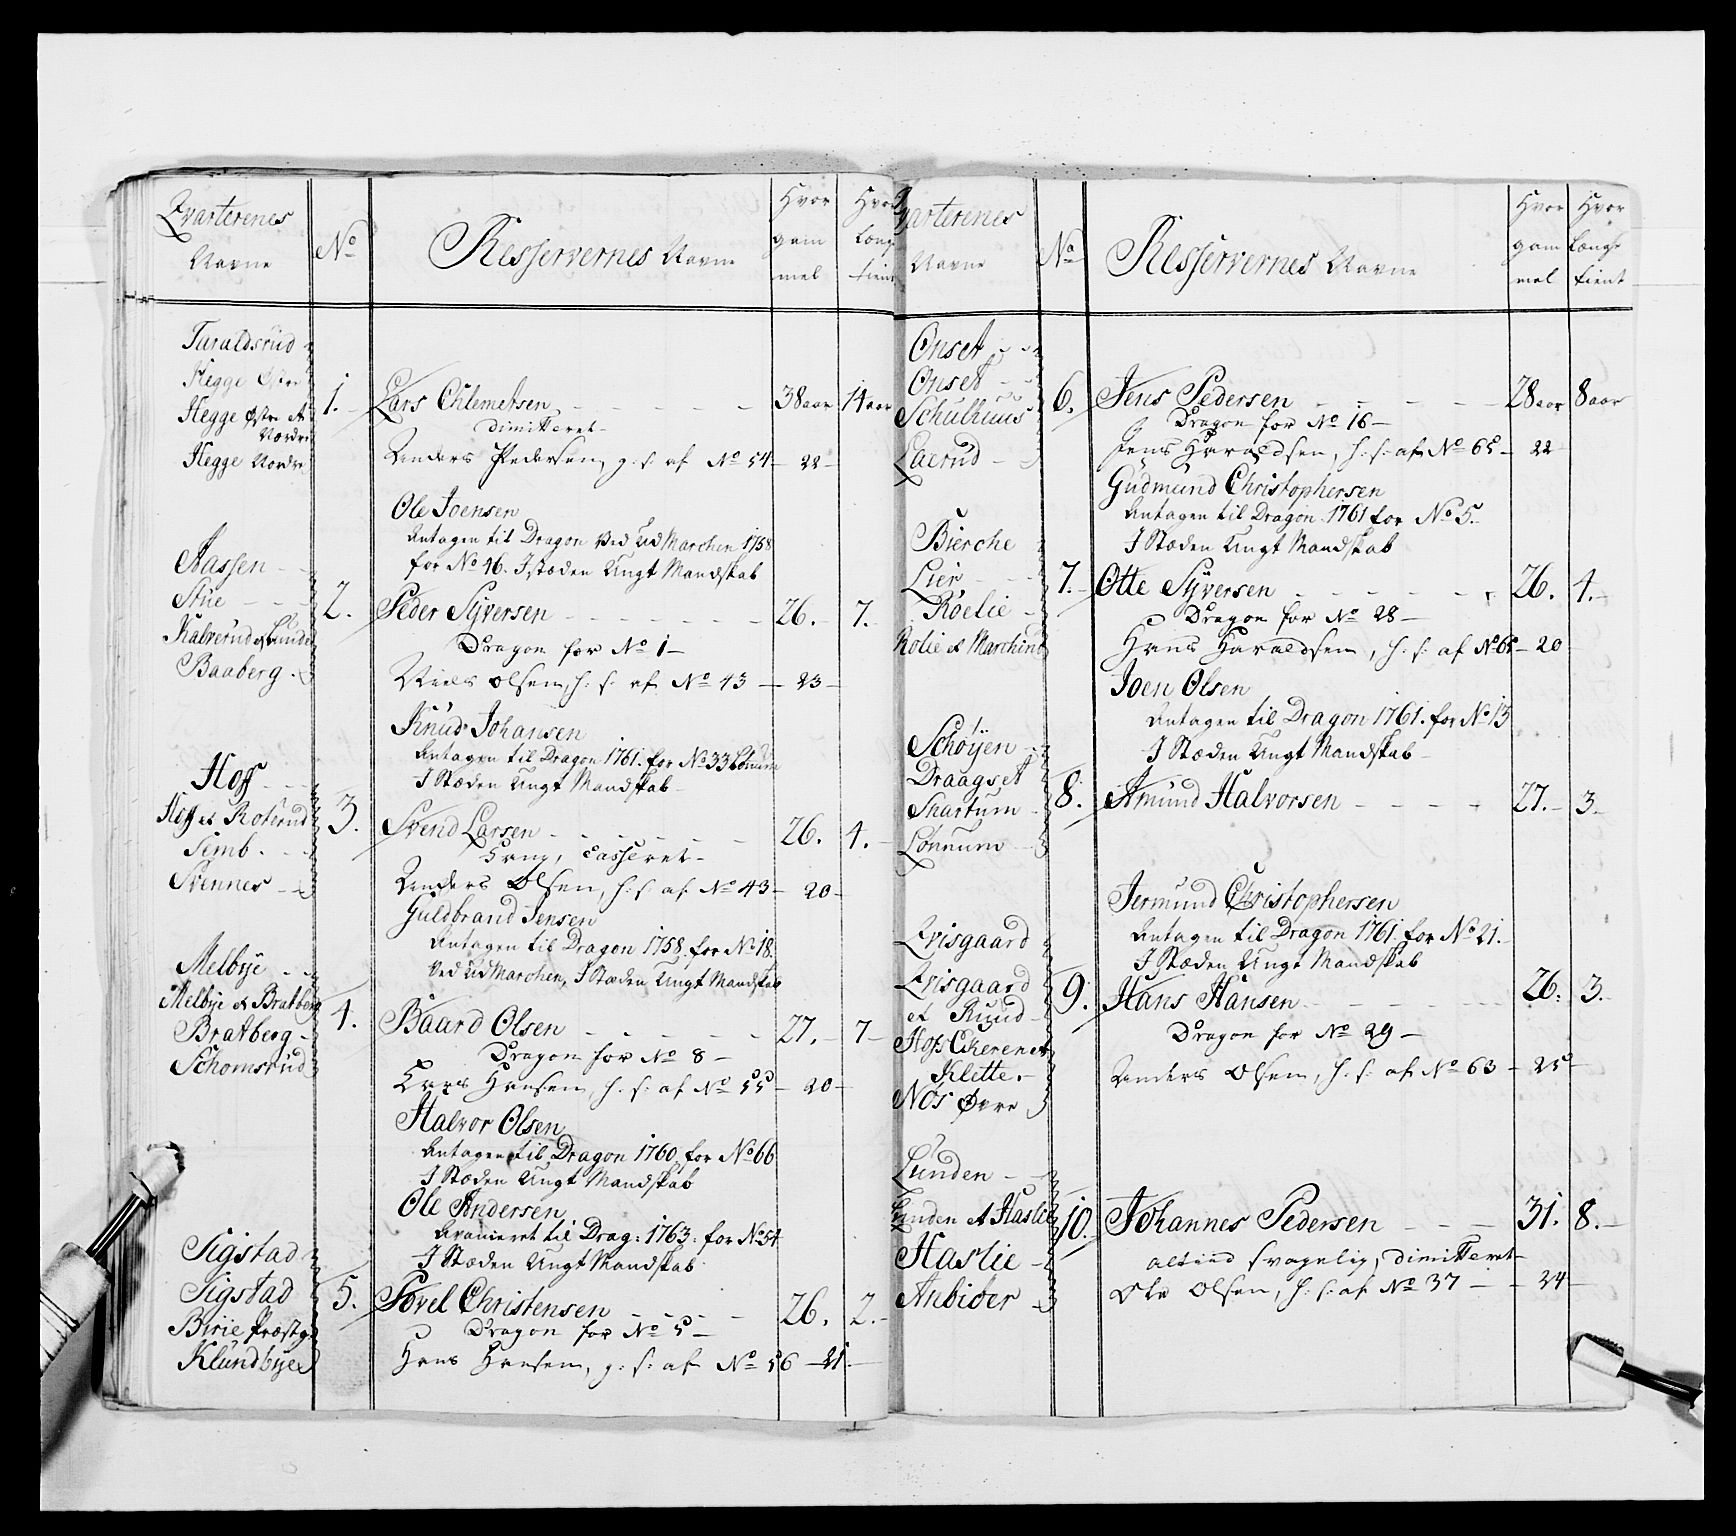 Qvarterenes Navne
No
Resservernes Navne
Hvor gam mel
Hvor længe tient
Taraldsrud
Hegge Østre
Hegge Østre et Nordre
Hegge Nordre
1. Lars Chlemetsen 38 aar 14 aar
Dimitteret
Anders Pedersen, g: s: af No 54 - 22 -
Ole Joensen
Antagen til Dragon Ved Ud Marchen 1758
for No 46. I stæden Ungt Mandskab
Aassen
Stue
Kalverud et Lunde
Baaberg
2. Peder Syversen 26. 7.
Dragon for No 1
Niels Olsen, h: s: af No 43 - 23 -
Knud Johansen
Antagen til Dragon 1761. for No 33 Lønum
I Stæden Ungt Mandskab
Hoff
Hoff et Roterud
Semb
Svennes
3. Svend Larsen 26. 4.
Krup, Casseret
Anders Olsen, h: s: af No 43 - 20 -
Guldbrand Jensen
Antagen til Dragon 1758. for No 18.
Ved Ud Marchen, I Stæden Ungt Mandskab
Melbye
Melbye et Bratberg
Bratberg
Schomsrud
4. Baard Olsen 27. 7
Dragon for No 8
Lars Hansen, h: s: af No 55 - 20 -
Halvor Olsen
Antagen til Dragon 1760 for No 66
I Stæden Ungt Mandskab
Ole Andersen
Avanceret til Drag: 1763: for No 54
I Stæden Ungt Mandskab
Sigstad
Sigstad
Birie Præstg:
Klundbye
5. Povel Christensen 26. 2.
Dragon for No 5
Hans Hansen, g: s: af No 56 - 21. -
Qvarterenes Navne
No
Resservernes Navne
Hvor gam mel
Hvor længe tient
Onset
Onset
Schulhuus
Laerud
6. Jens Pedersen 28 aar 8 aar
Dragon for No 16
Jens Haraldsen, h: s: af No 65 - 22
Gudmund Christophersen
Antagen til Dragon 1761 for No 5.
I Stæden Ungt Mandskab
Bierche
Lier
Röelie
Rolie et Marchind
7. Otte Syversen 26. 4.
Dragon for No 28
Hans Haraldsen, h: s: af No 65 - 20
Joen Olsen
Antagen til Dragon 1761. for No 13
I Stæden Ungt Mandskab
Schöyen
Draagset
Shartum
Lönnum
8. Amund Halvorsen 27. 3.
Jermund Christophersen
Antagen til Dragon 1761. for No 21.
I Stæden Ungt Mandskab
Qvisgaard
Qvisgaard
et Ruud
Hoffs Ekerenet
Klette
Nös Øvre
9. Hans Hansen 26. 3.
Dragon for No 29
Anders Olsen, h: s: af No 63 - 25 -
Lunden
Lunden et Haslie
Haslie
Anbider
10. Johannes Pedersen 31. 8.
altiid svagelig, Dimitteret
Ole Olsen, h: s: af No 37 - 24